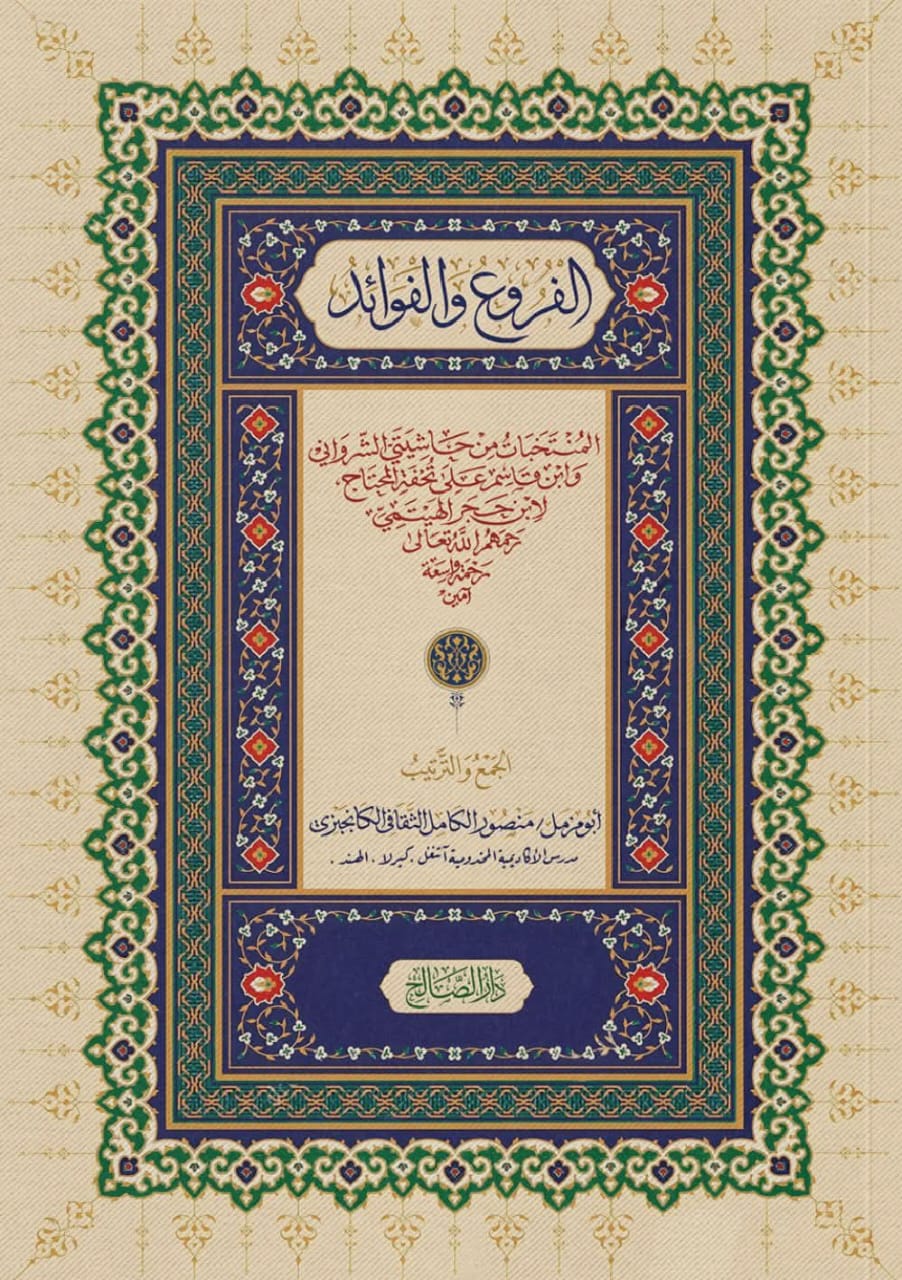 الفُرُوعُ وَالفَوَائِدُ
المُنْتَخَبَاتُ مِنْ حَاشِيَتَيِ الشَّرْوَانِي
وَابْنِ قَاسِمٍ عَلَى تُحْفَةِ المُحْتَاجِ،
لِابْنِ حَجَرٍ الهَيْتَمِيِّ
رَحِمَهُمُ اللهُ تَعَالَى
رَحْمَةً وَاسِعَةً
آمِينْ
الجَمْعُ وَالتَّرْتِيبُ
أبو مزمل / منصور الكامل الثقافي الكانجيزي
مدرس الأكاديمية المخدومية آتنغل، كيرلا، الهند.
دَارُ الصَّالِح